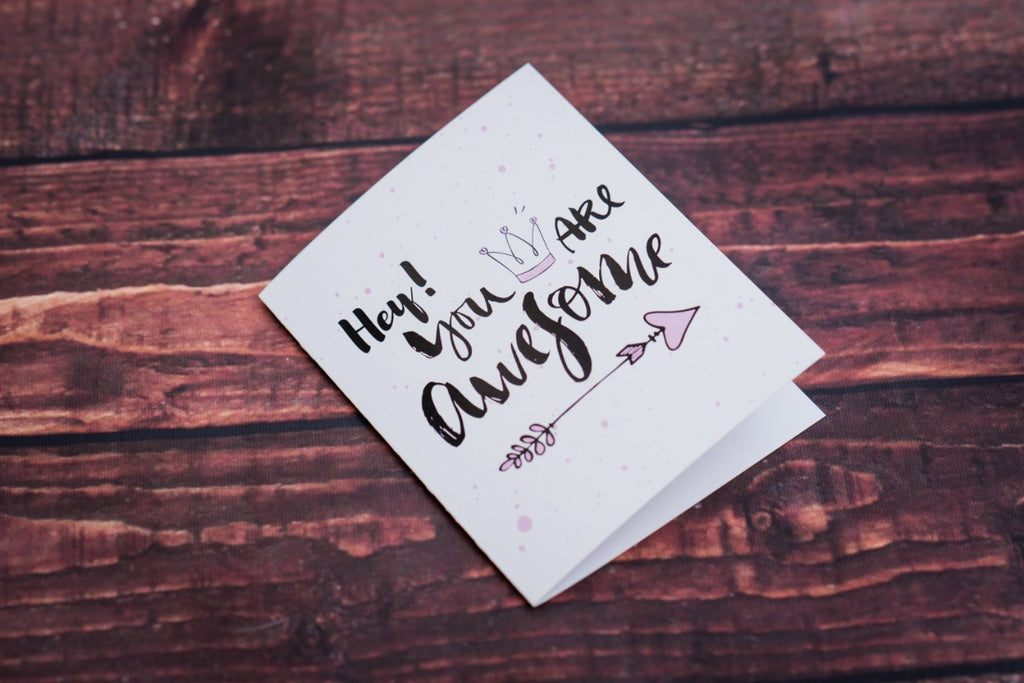 Hey!
you are
awesome